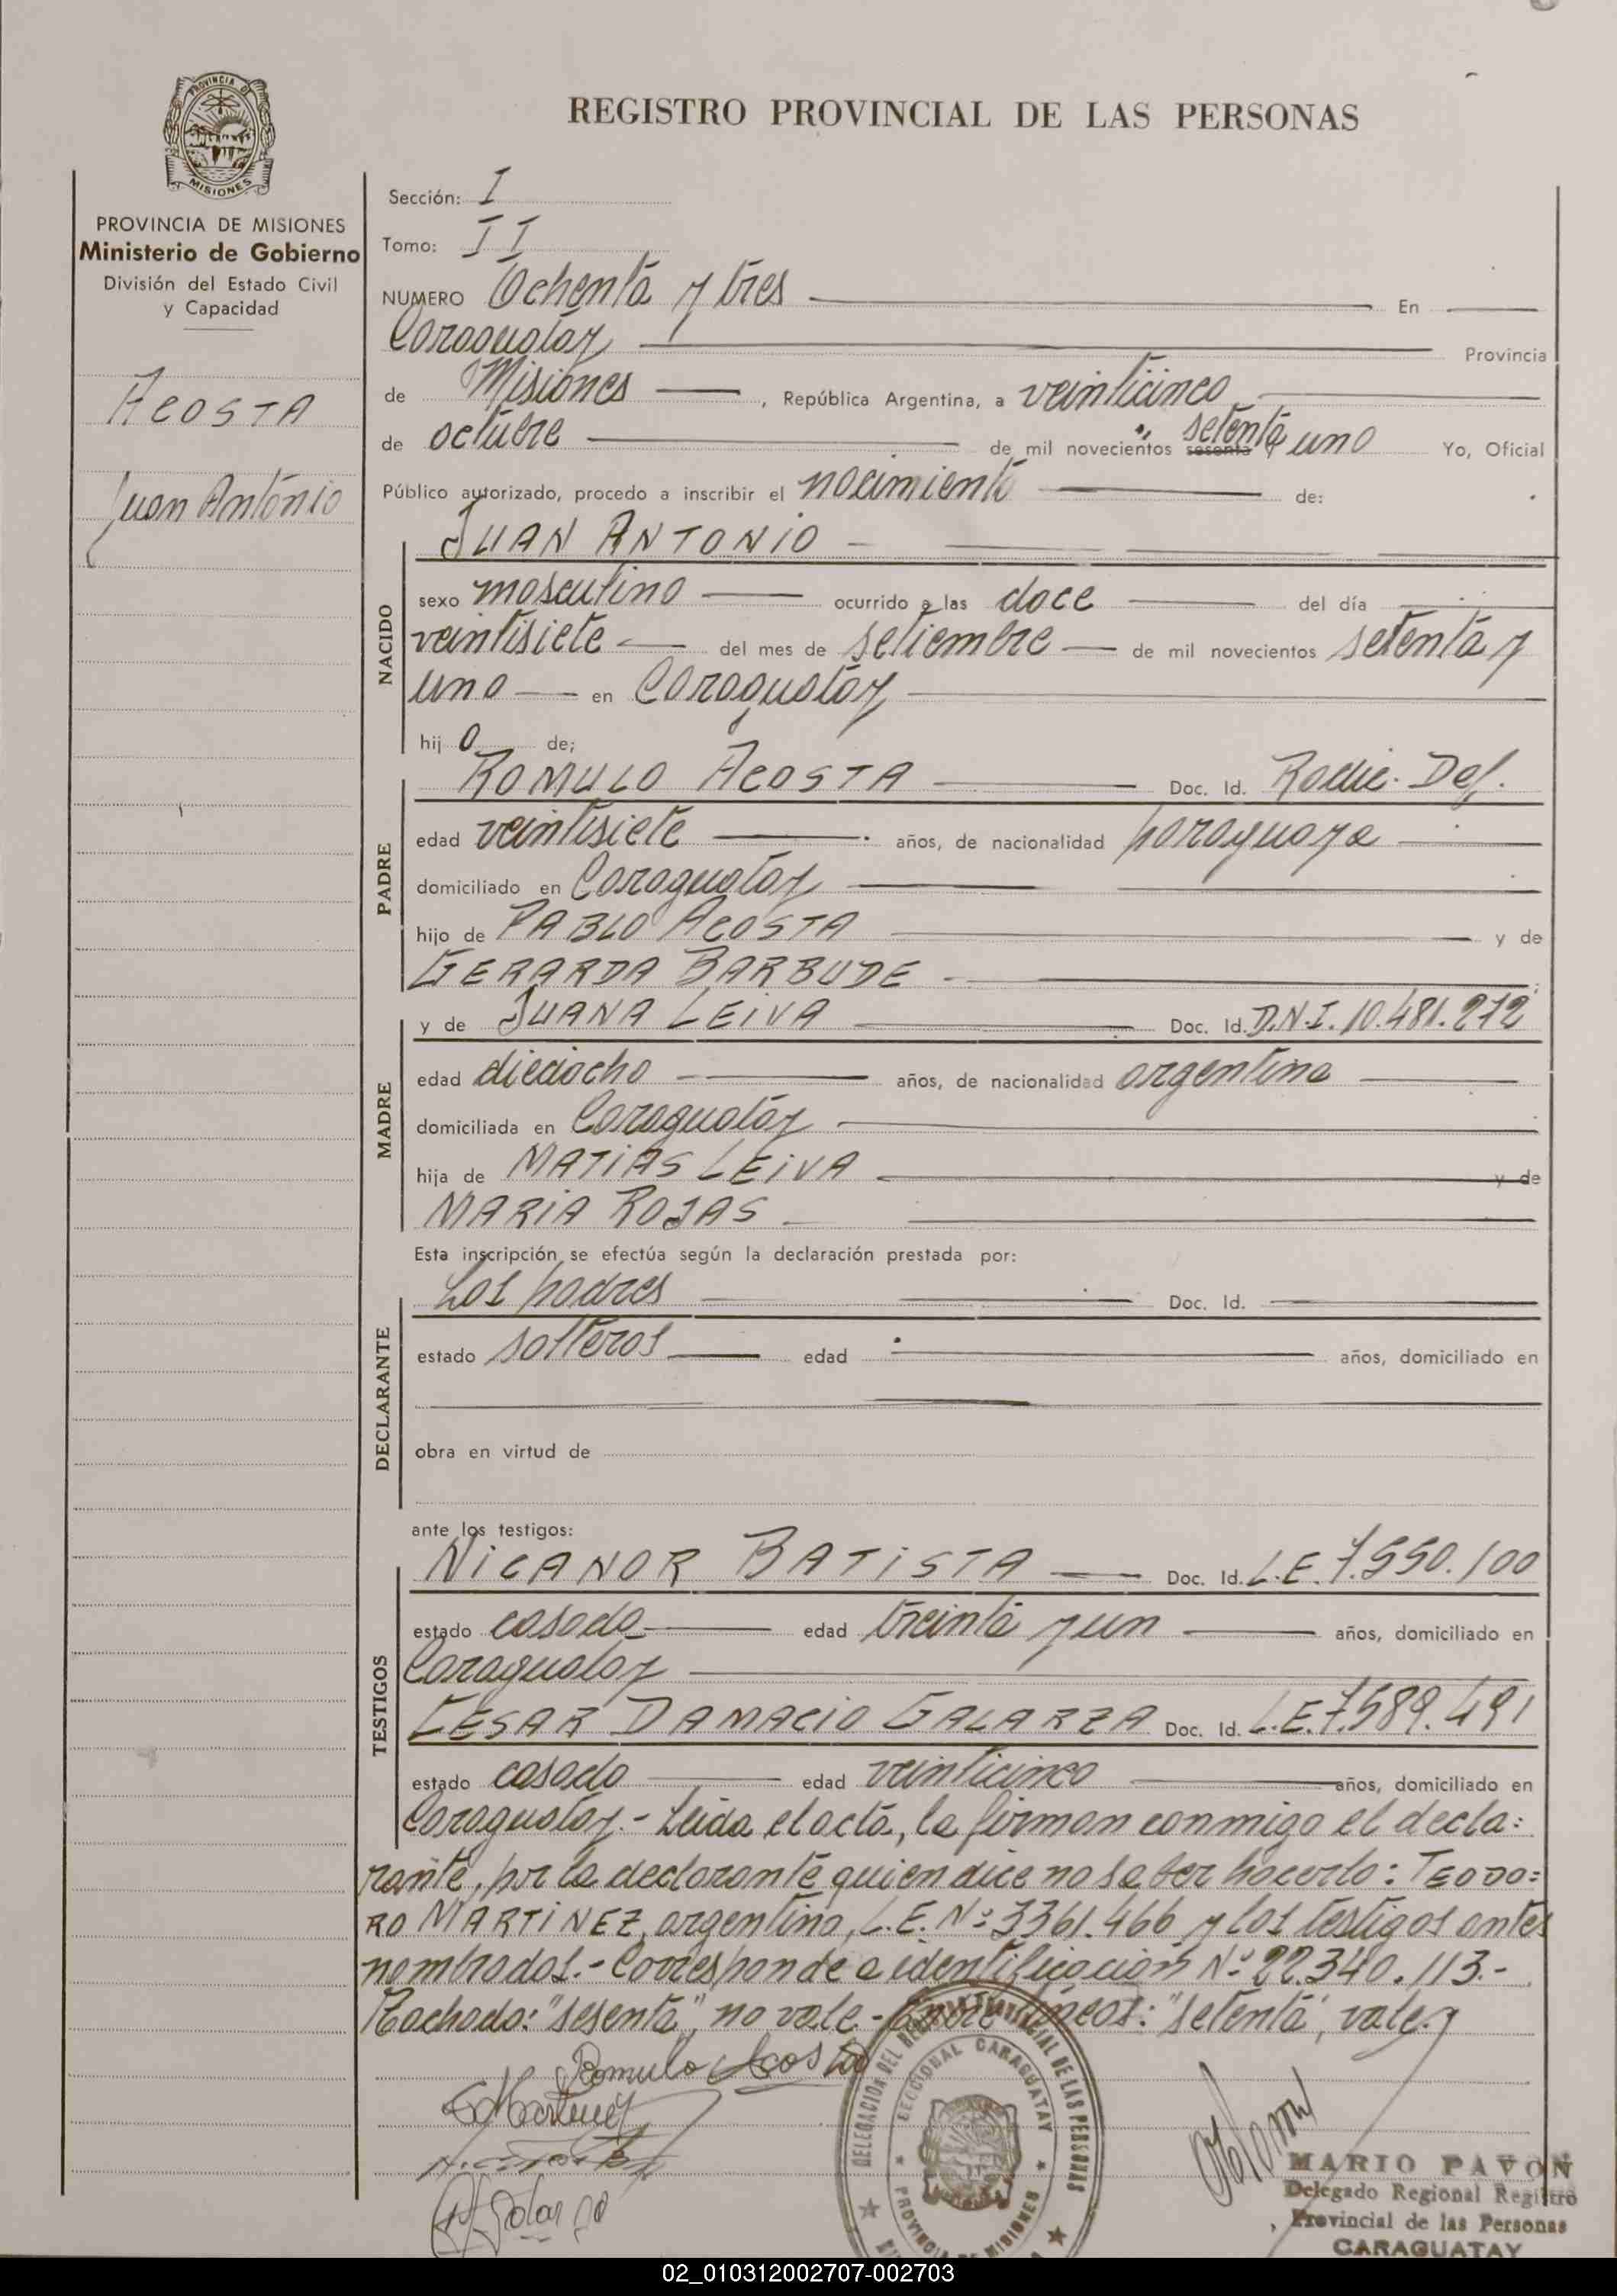 REGISTRO PROVINCIAL DE LAS PERSONAS
PROVINCIA DE MISIONES
Ministerio de Gobierno
División del Estado Civil
y Capacidad
ACOSTA
Juan Antonio
Sección: I
Tomo: II
NUMERO Ochenta y tres En
Caraguatay Provincia
de Misiones , República Argentina, a veinticinco
de octubre de mil novecientos sesenta setenta y uno Yo, Oficial
Público autorizado, procedo a inscribir el nacimiento de:
NACIDO
JUAN ANTONIO
sexo masculino ocurrido a las doce del día
veintisiete del mes de setiembre de mil novecientos setenta y
uno en Caraguatay
hijo de;
PADRE
ROMULO ACOSTA Doc. Id.
edad veintisiete años, de nacionalidad paraguaya
domiciliado en Caraguatay
hijo de PABLO ACOSTA y de
GERARDA BARBUDE
MADRE
y de JUANA LEIVA Doc. Id. D.N.I. 10.481.272
edad dieciocho años, de nacionalidad argentina
domiciliada en Caraguatay
hija de MATIAS LEIVA y de
MARIA ROJAS
Esta inscripción se efectúa según la declaración prestada por:
DECLARANTE
Los padres Doc. Id.
estado solteros edad años, domiciliado en
obra en virtud de
ante los testigos:
TESTIGOS
NICANOR BATISTA Doc. Id. L.E. 7.550.100
estado casado edad treinta y un años, domiciliado en
Caraguatay
CESAR DAMACIO GALARZA Doc. Id. L.E. 7.589.491
estado casado edad veinticinco años, domiciliado en
Caraguatay.- Leida el acta, la firman conmigo el decla=
rante, por la declarante quien dice no saber hacerlo: TEODO=
RO MARTINEZ, argentino, L.E. Nº 3361.466 y los testigos antes
nombrados.- Corresponde a identificación Nº 22.340.113.-
Tachado: "sesenta", no vale - Entre líneas: "setenta", vale.
Romulo Acosta
DELEGACION DEL REGISTRO PROVINCIAL DE LAS PERSONAS
SECCIONAL CARAGUATAY
PROVINCIA DE MISIONES
MARIO PAVON
Delegado Regional Registro
Provincial de las Personas
CARAGUATAY
02_010312002707-002703